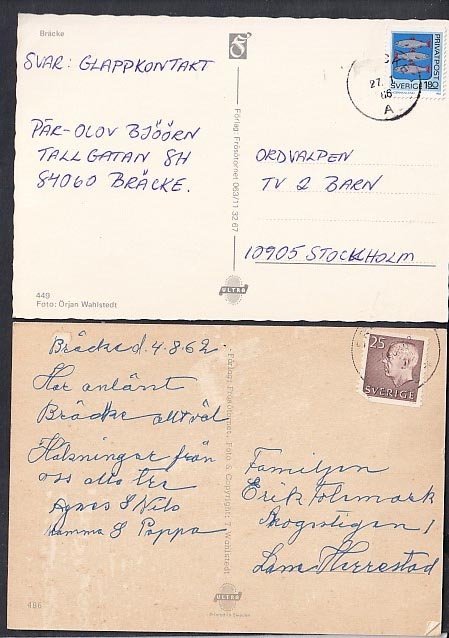 Bräcke
SVAR: GLAPPKONTAKT
PÄR-OLOV BJÖÖRN
TALLGATAN 8H
84060 BRÄCKE.
449
Foto: Örjan Wahlstedt
Förlag: Frösötornet 063/11 32 67
ULTRA
PRIVATPOST
SVERIGE 1.80
27.
86
A
ORDVALPEN
TV 2 BARN
10905 STOCKHOLM
Bräcke d. 4.8.62.
Har anlänt
Bräcke allt väl
Hälsningar från
oss alla
Agnes & Nils
Mamma & Pappa
486
Foto & Copyright: T. Wahlstedt
ULTRA
Printed in Sweden
25
SVERIGE
Familjen
Erik